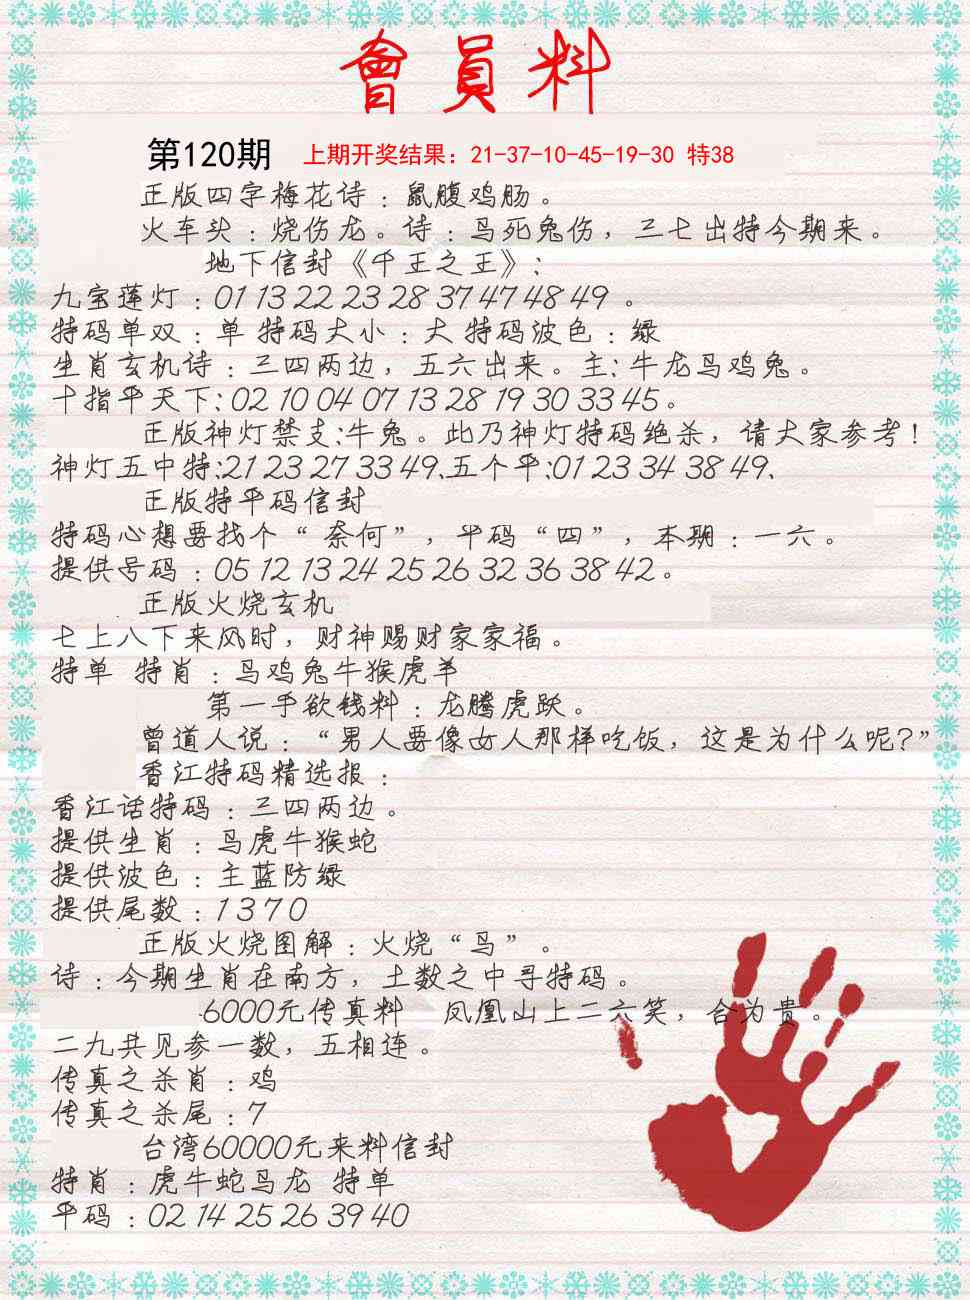 會員料
第120期 上期开奖结果：21-37-10-45-19-30 特38
正版四字梅花诗：鼠腹鸡肠。
火车头：烧伤龙。诗：马死兔伤，三七出特今期来。
地下信封《千王之王》：
九宝莲灯：01 13 22 23 28 37 47 48 49 。
特码单双：单 特码大小：大 特码波色：绿
生肖玄机诗：三四两边，五六出来。主：牛龙马鸡兔。
十指平天下：02 10 04 07 13 28 19 30 33 45。
正版神灯禁支：牛兔。此乃神灯特码绝杀，请大家参考！
神灯五中特：21 23 27 33 49、五个平：01 23 34 38 49、
正版特平码信封
特码心想要找个“奈何”，平码“四”，本期：一六。
提供号码：05 12 13 24 25 26 32 36 38 42。
正版火烧玄机
七上八下来风时，财神赐财家家福。
特单 特肖：马鸡兔牛猴虎羊
第一手欲钱料：龙腾虎跃。
曾道人说：“男人要像女人那样吃饭，这是为什么呢？”
香江特码精选报：
香江话特码：三四两边。
提供生肖：马虎牛猴蛇
提供波色：主蓝防绿
提供尾数：1 3 7 0
正版火烧图解：火烧“马”。
诗：今期生肖在南方，土数之中寻特码。
6000元传真料 凤凰山上二六笑，合为贵。
二九共见参一数，五相连。
传真之杀肖：鸡
传真之杀尾：7
台湾60000元来料信封
特肖：虎牛蛇马龙 特单
平码：02 14 25 26 39 40